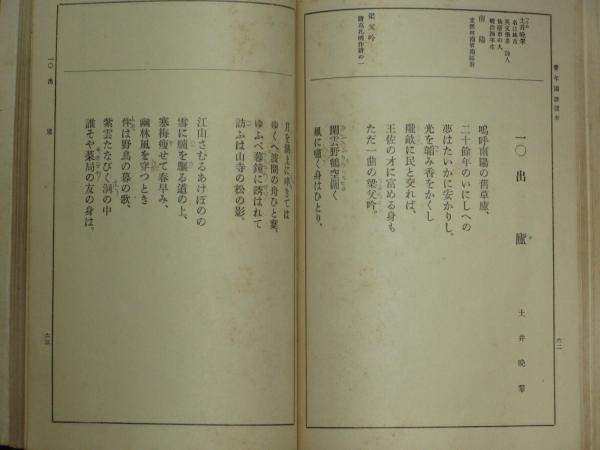 青年國語讀本
土井晩翠
名は林吉
英文學者 詩人
仙臺市の人
明治四年生
南陽
支那河南省南陽府
梁父吟
諸葛孔明作詩の一
一〇 出 廬
土井晩翠
嗚呼南陽の舊草廬、
二十餘年のいにしへの
夢はたいかに安かりし。
光を韜み香をかくし
隴畝に民と交れば、
王佐の才に富める身も
ただ一曲の梁父吟。
閑雲野鶴空濶く
風に嘯く身はひとり、
六二
一〇 出 廬
月を湖上に碎きては
ゆくへ波間の舟ひと葉、
ゆふべ暮鐘に誘はれて
訪ふは山寺の松の影。
江山さむるあけぼのの
雪に驢を驅る道の上、
寒梅痩せて春早み、
幽林風を穿つとき
伴は野鳥の暮の歌、
紫雲たなびく洞の中
誰そや棊局の友の身は。
六三